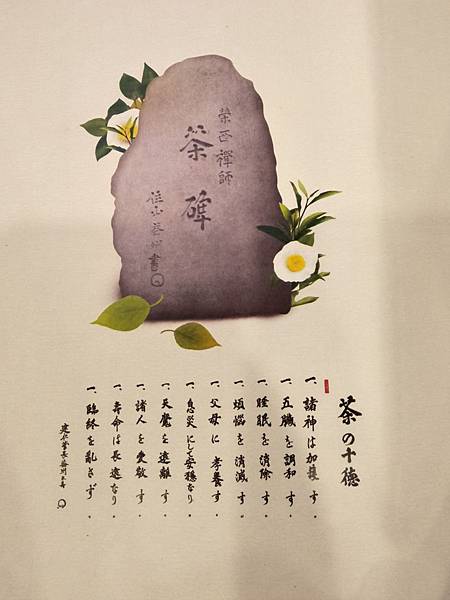 榮西禪師
茶碑
住山益州書
茶の十徳
一、諸神は加護す.
一、五臓を調和す.
一、睡眠を消除す.
一、煩悩を消滅す.
一、父母に孝養す.
一、息災にして安穏なり
一、天魔を遠離す.
一、諸人を愛敬す.
一、寿命は長遠なり.
一、臨終を乱さず.
建仁管長益州